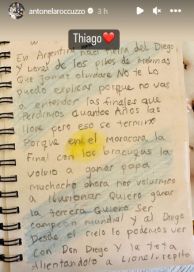 antonelaroccuzzo 5 h
Thiago❤
En Argentina naci tierra del Diego
y Lionel de los pibes de Malvinas
Que jamas olvidare No te lo
puedo explicar porque no vas
a entender las finales que
Perdimos cuantos Años las
llore pero eso se termino
Porque en el Maracana la
final con los brazucas la
volvio a ganar papa
muchacho ahora nos volvimos
a ilusionar Quiero ganar
la tercera Quiero Ser
campeon mundial y al Diego
Desde el cielo lo podemos ver
con Don Diego y la Tota
Alentandolo a Lionel